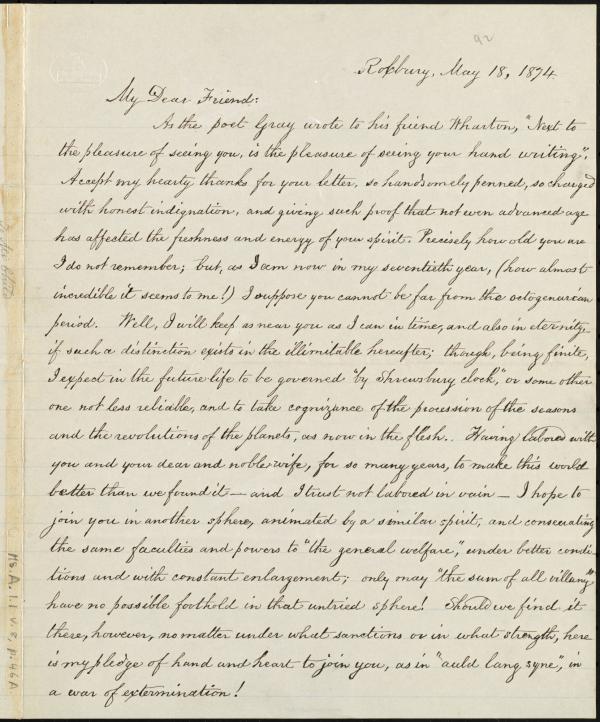 92
Roxbury, May 18, 1874.
My Dear Friend:
As the poet Gray wrote to his friend Wharton, "Next to
the pleasure of seeing you, is the pleasure of seeing your hand writing".
Accept my hearty thanks for your letter, so handsomely penned, so charged
with honest indignation, and giving such proof that not even advanced age
has affected the freshness and energy of your spirit. Precisely how old you are
I do not remember; but, as I am now in my seventieth year, (how almost
incredible it seems to me!) I suppose you cannot be far from the octogenarian
period. Well, I will keep as near you as I can in time, and also in eternity,
if such a distinction exists in the illimitable hereafter; though, being finite,
I expect in the future life to be governed "by Shrewsbury clock," or some other
one not less reliable, and to take cognizance of the procession of the seasons
and the revolutions of the planets, as now in the flesh. Having labored with
you and your dear and noble wife, for so many years, to make this world
better than we found it — and I trust not labored in vain — I hope to
join you in another sphere, animated by a similar spirit, and consecrating
the same faculties and powers to "the general welfare," under better condi-
tions and with constant enlargement; only may "the sum of all villany"
have no possible foothold in that untried sphere! Should we find it
there, however, no matter under what sanctions or in what strength, here
is my pledge of hand and heart to join you, as in "auld lang syne", in
a war of extermination!
Ms. A. 1.1 v. 8, p. 46A